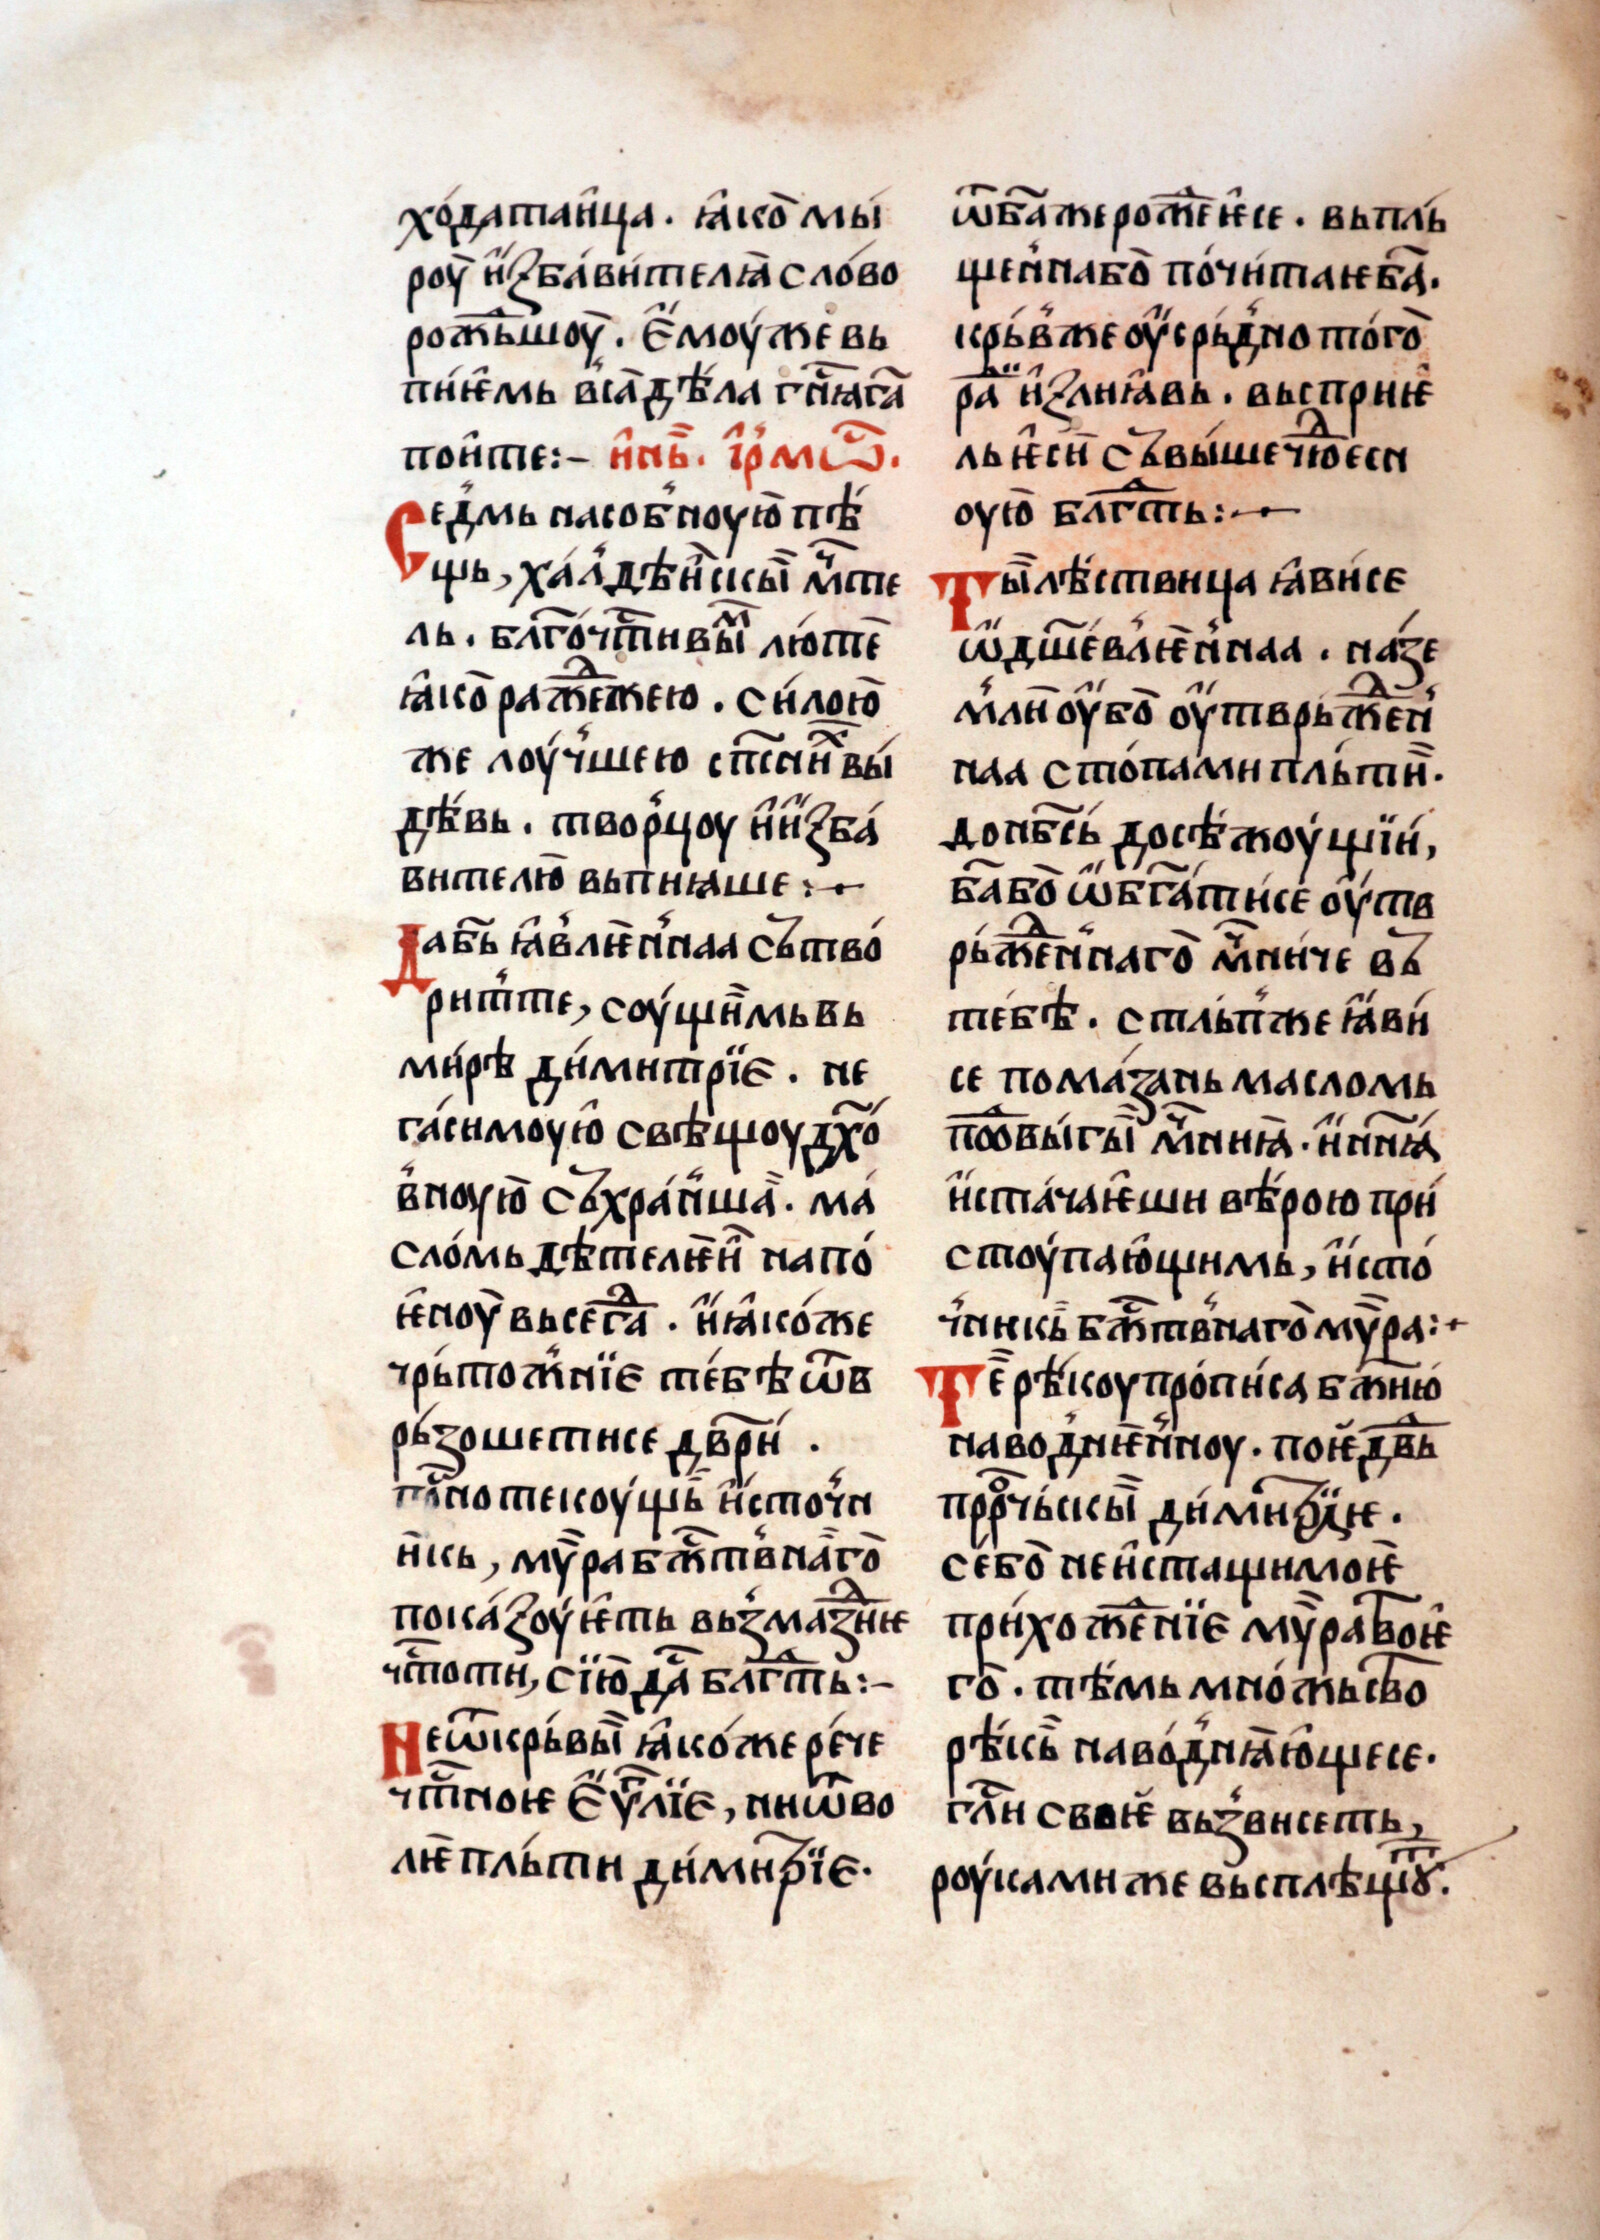 хо́датаи̂ца. ꙗ̂ко̀ мы́
роу̀ и҆зба́вителꙗ̀ сло́во
рожⷣьшоу̀. Є҆моу́же вь
пиѥ́мь в᾽са̀ дѣ́ла гн҃ꙗ га҃
пои̂те:– и̂нь҃. і҆рмѡ҃.
Сед᾽мь насоб᾽ноую̀ пѣ́
щь, ха́л᾽дѣи҆скы̀ мч҃те
ль. блг҃о́чт҃ивы̀ⷨ лю́тѐ
ꙗ̂ко̀ ражⷣежею. си́лою̀
же лоу́ч᾽шею сп҃снѝⷯ вы́
дѣ́вь. твор᾽цоу и҆ и҆зба́
вителю̀ вьпиꙗше:–
Дабь҃ ꙗ̂в᾽лѥн᾽наа сьтво́
рит᾽те, соу́щѝмь вь
ми́рѣ ди́митрїе. не
га́симоую̂ свѣщоу дх҃о́
в᾽ноую̀ сьхра́н᾽ша̀. ма́
сло́мь дѣтелѥ̀и̂ напо́
ѥ̂ноу̀ вьсегⷣа. и҆ ꙗ̂ко́же
чрьтож᾽нїе те́бѣ ѿв
рьзошетисе дв҃ри́.
пл҃нотекоу́щь҃ и҆сточ᾽н
и́кь, му̀ра бж҃тв᾽на̀го̀
пока́зоуѥ̂ть вьз᾽мазⷣиѥ
чт҃оти, сїю̀ да҃ блг҃ⷣть:–
Не ѿкрьвы̀ ꙗ̂ко́же ре́че
чт҃ное Є҆у҃лїе, ни ѿво
лѥ̀ пль́ти ди́митрїе.
ѿ ба҃ же рожⷣеѥ̂се. вьпль
щен᾽на бо̀ по́читаѥ ба҃.
крь́в᾽же оу҆срьд᾽но то́го̀
ра҃ⷣи и҆злиꙗ̂вь. вьсприѥ̂
ль ѥ̂сѝ сьвы́ше чюⷣесн
оую̀ блг҃ⷣть:–
Ты̀ лѣ́ствица ꙗ̂ви́се
ѡ҆дш҃е́в᾽лѥн᾽наа. на́зе
м᾽лѝ оу҆бо̀ оу҆тврьжⷣен᾽
наа сто́пами пль́тѝ.
до нб҃сь́ до сѣжоу́щїи́,
ба҃ бо̀ ѡ҆бга҃ти́се оу҆тв
рьжⷣен᾽наго̀ мч҃ни́че вь
те́бѣ. стль́п᾽же ꙗ̂ви́
се пома́зань масломь
пѡⷣвы́гы̀ мч҃ниꙗ̀. и҆ ни҃ꙗ́
и҆ста́чаѥ̂ши вѣ́рою при́
стоу́паю̂щимь, и҆сто́
ч᾽никь̀ бж҃тв᾽наго̀ му̀ра:–
Тѐ рѣ́коу про́пи́са бж҃ию́
наводнѥ̂н᾽ноу. поѥ҆ двⷣь
прⷪ҇рчьскы̀ ди́митрїѥ.
се́бо̀ неи̂стащимоѥ̂
прихожⷣенїе му̀ра твоѥ̂
го̀. тѣ́мь мно́жьство
рѣ́кь̀ наво́д᾽нꙗ̀ю̂щесе.
гл҃и своѥ҆ вьз᾽висеть,
роу́ками же вьсплѣщꙋⷮ.